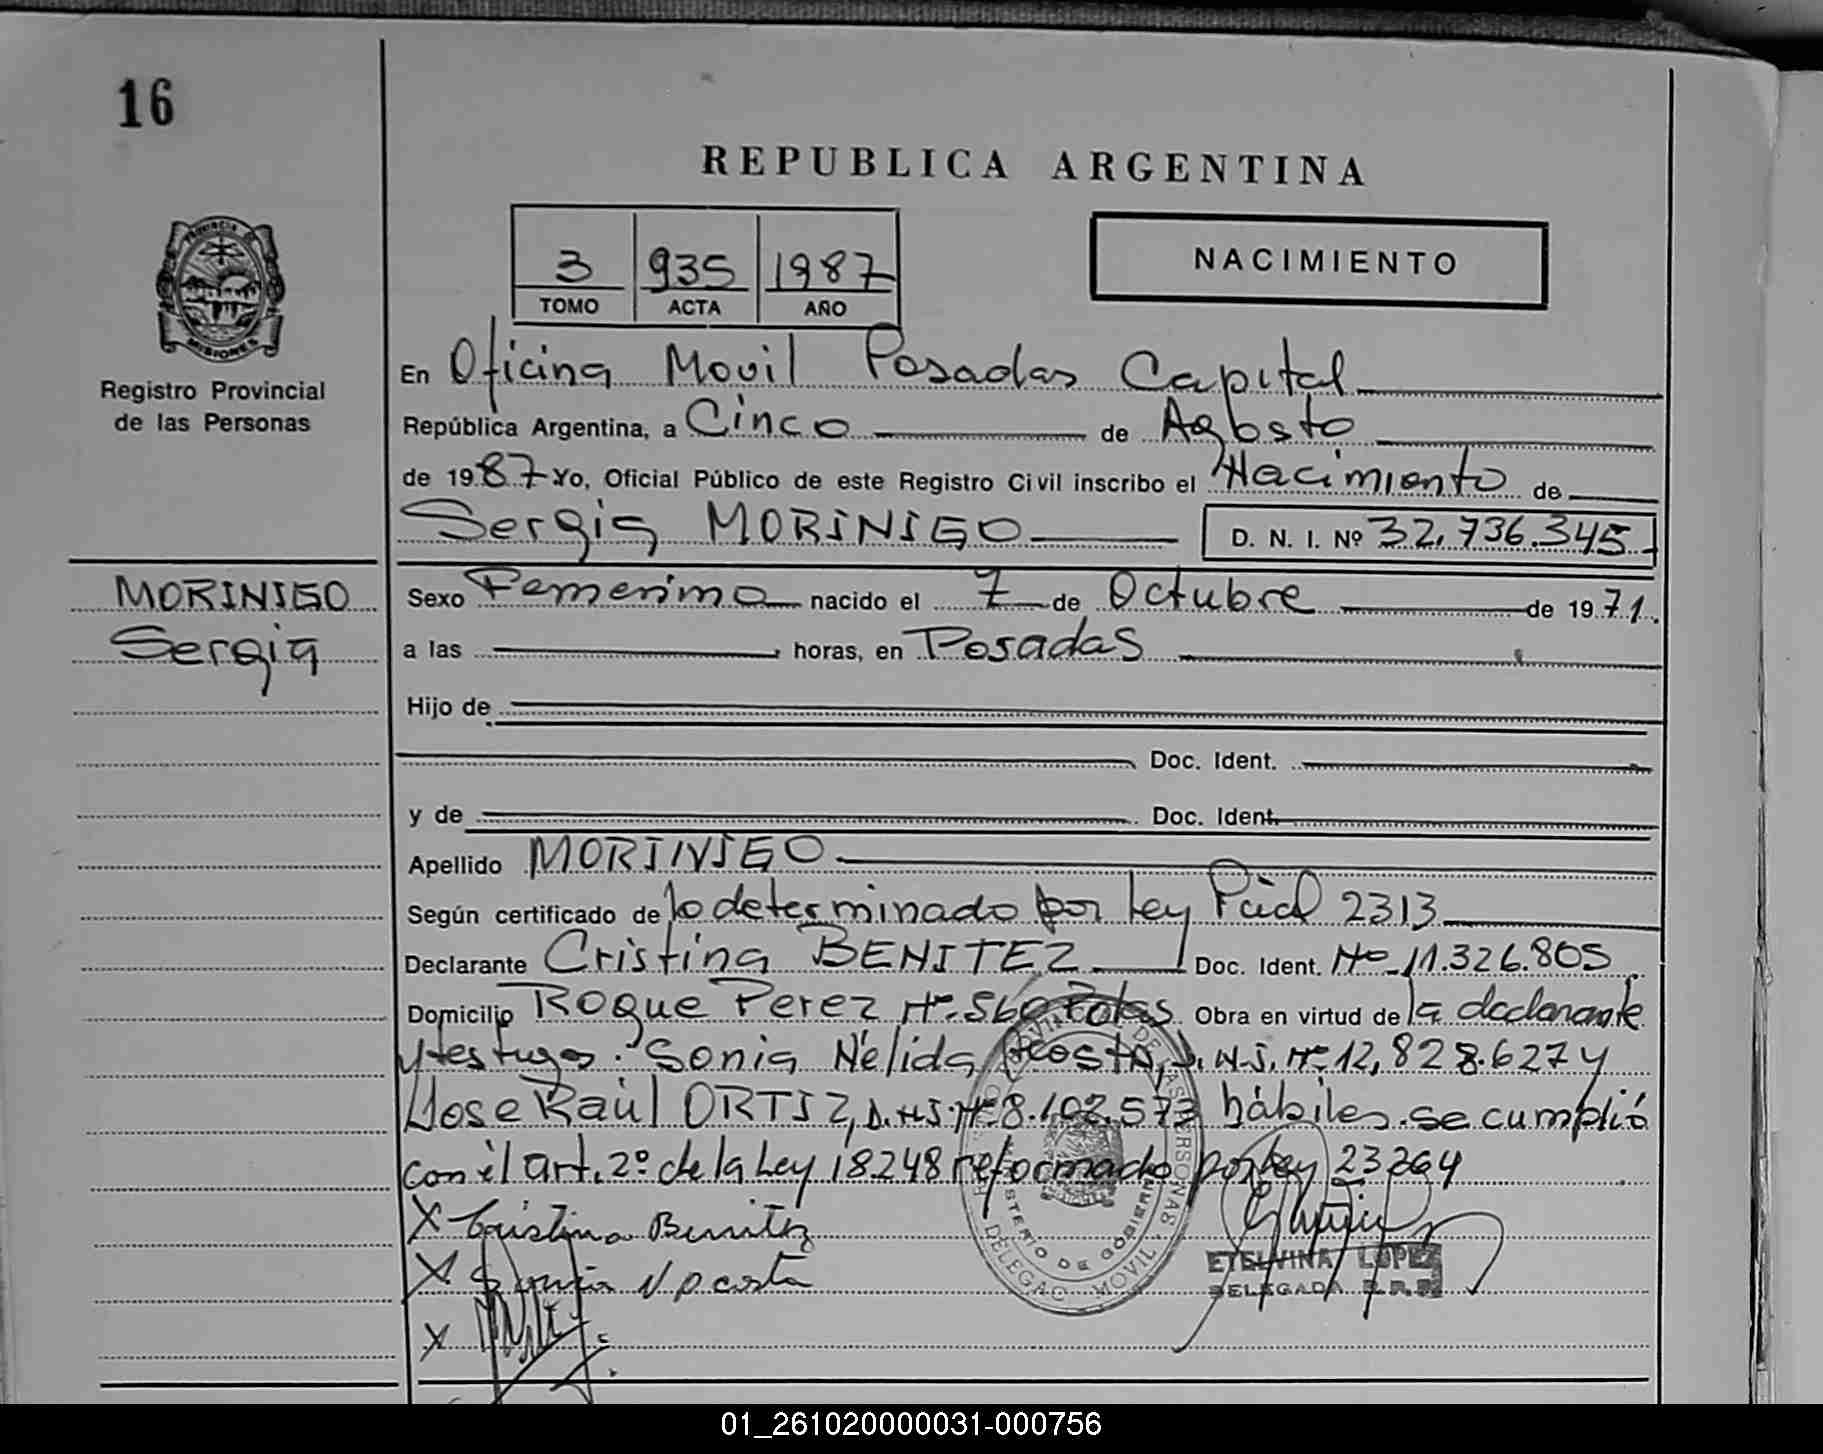 16
REPUBLICA ARGENTINA
3 935 1987
TOMO ACTA AÑO
NACIMIENTO
PROVINCIA DE
MISIONES
Registro Provincial
de las Personas
En Oficina Movil Posadas Capital
República Argentina, a Cinco de Agosto
de 1987 Yo, Oficial Público de este Registro Civil inscribo el Nacimiento de
Sergia MORINIGO D. N. I. Nº 32.736.345
MORINIGO
Sergia
Sexo Femenino nacido el 7 de Octubre de 1971.
a las horas, en Posadas
Hijo de
Doc. Ident.
y de Doc. Ident.
Apellido MORINIGO
Según certificado de lo determinado por Ley Pcial 2313
Declarante Cristina BENITEZ Doc. Ident. Nº 11.326.805
Domicilio Roque Perez Nº 560 Pdas Obra en virtud de la declarante
y testigos: Sonia Nélida Acosta, D.N.I. Nº 12,828.627 y
Jose Raúl ORTIZ, D.N.I. Nº 8.102.573 hábiles. se cumplió
con el art. 2º de la Ley 18248 reformado por Ley 23264
X Cristina Benitez
X Sonia N Acosta
X
MINISTERIO DE GOBIERNO
DELEGAC. MOVIL
ETELVINA LOPEZ
DELEGADA R.P.P.
01_261020000031-000756